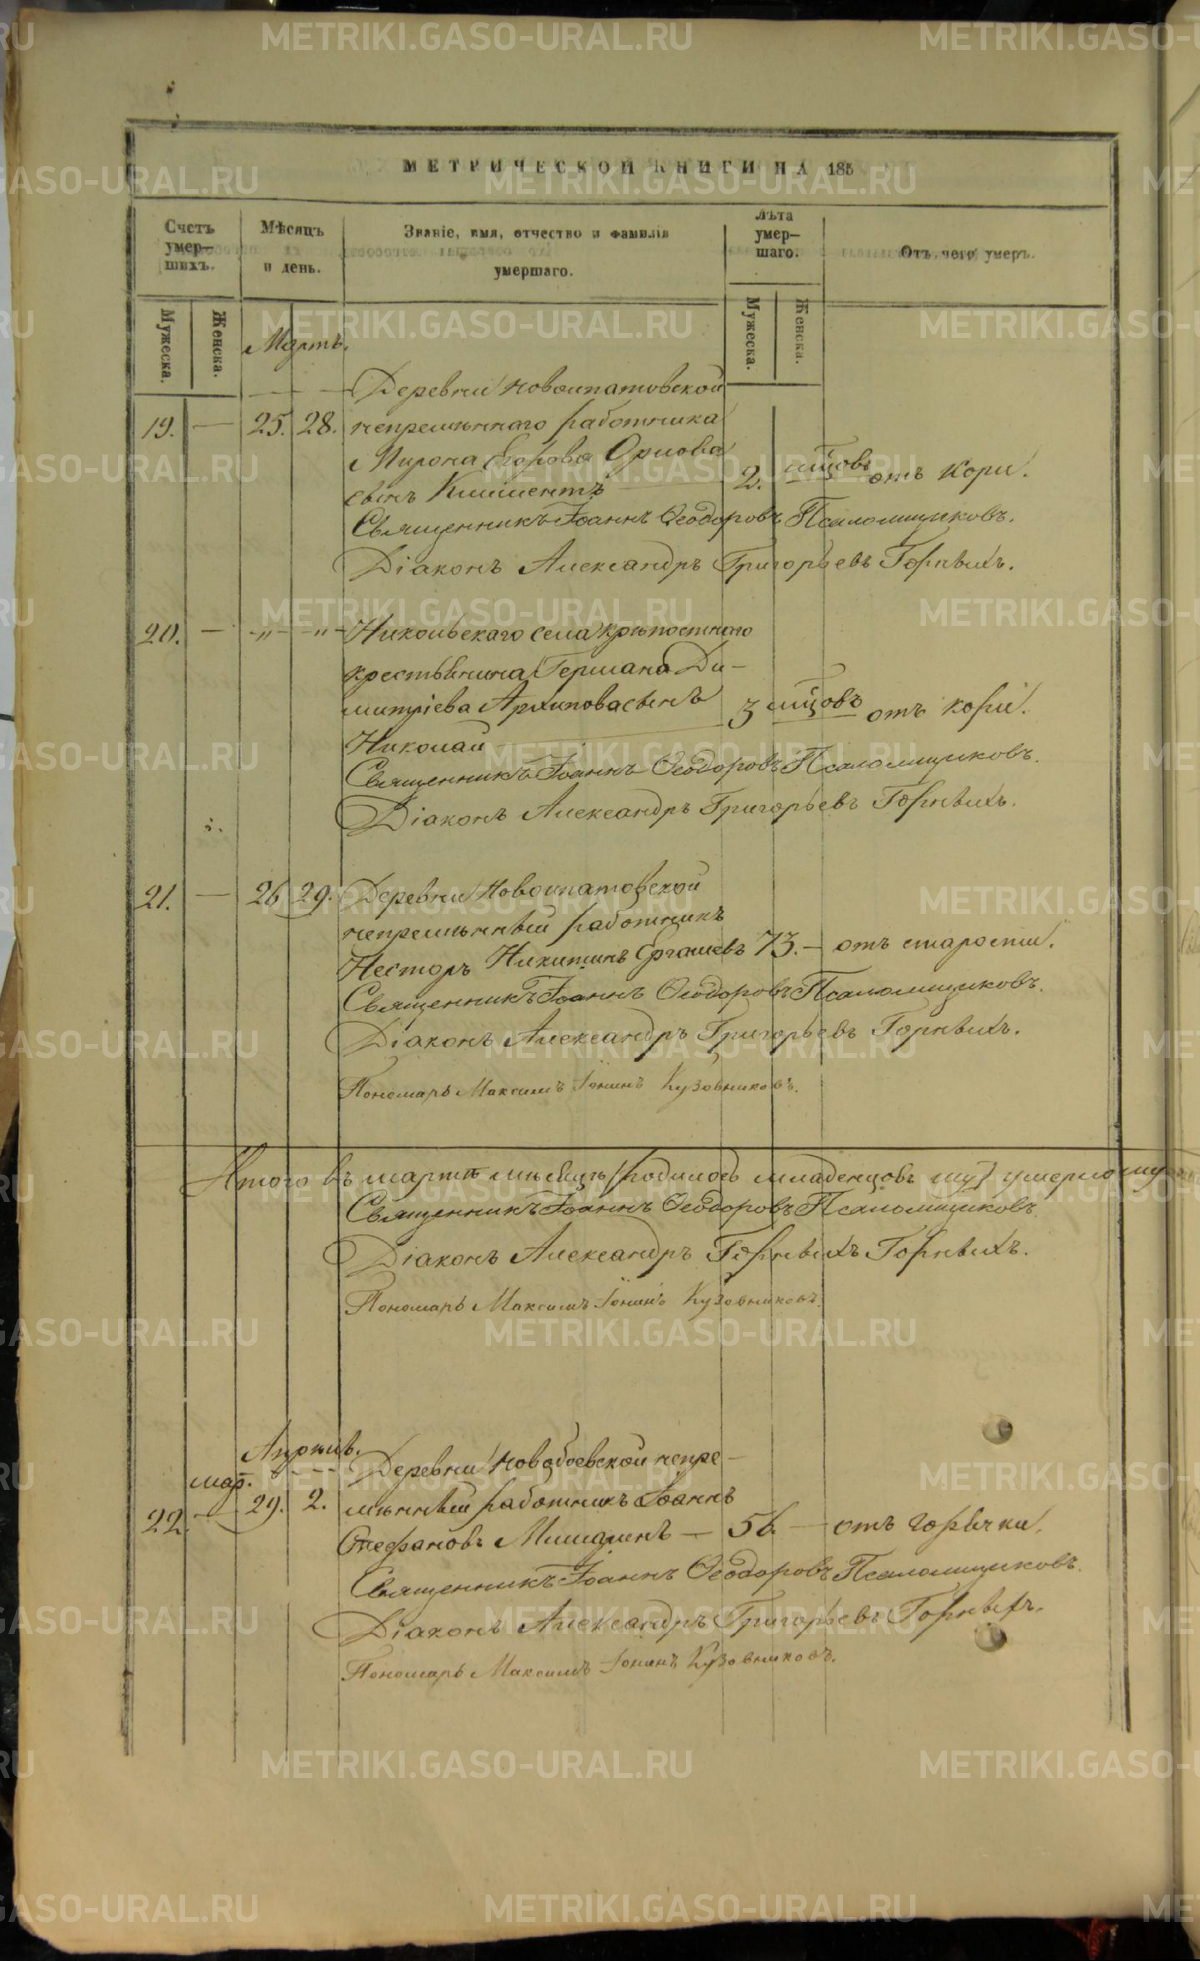 МЕТРИЧЕСКОЙ КНИГИ НА 185
Счетъ умер-шихъ.
Мѣсяцъ и день.
Званіе, имя, отчество и фамилія умершаго.
Лѣта умер-шаго.
Отъ чего умеръ.
Мужеска.
Женска.
Мужеска.
Женска.
Мартъ.
Деревни Новоипатовской
19. — 25. 28. непремѣннаго работника
Мирона Егорова Орлова
сынъ Климентъ 2. мцовъ отъ кори.
Священникъ Іоаннъ Ѳеодоровъ Псаломщиковъ.
Діаконъ Александръ Григорьевъ Горныхъ.
20. — -"- -"- Никольскаго села крѣпостнаго
крестьянина Германа Ди-
митріева Архипова сынъ 3 мцовъ отъ кори.
Николай
Священникъ Іоаннъ Ѳеодоровъ Псаломщиковъ.
Діаконъ Александръ Григорьевъ Горныхъ.
21. — 26 29. Деревни Новоипатовской
непремѣнный работникъ
Несторъ Никитинъ Ергашевъ 73. — отъ старости.
Священникъ Іоаннъ Ѳеодоровъ Псаломщиковъ.
Діаконъ Александръ Григорьевъ Горныхъ.
Пономарь Максимъ Іонинъ Кузовниковъ.
Итого въ мартѣ мѣсяцѣ родилось младенцовъ умерло
Священникъ Іоаннъ Ѳеодоровъ Псаломщиковъ.
Діаконъ Александръ Горныхъ Горныхъ.
Пономарь Максимъ Іонинъ Кузовниковъ.
Апрѣль.
мар. Деревни непре-
22. — 29. 2. мѣнный работникъ Іоаннъ
Стефановъ — 56. — отъ горячки.
Священникъ Іоаннъ Ѳеодоровъ Псаломщиковъ.
Діаконъ Александръ Григорьевъ Горныхъ.
Пономарь Максимъ Іонинъ Кузовниковъ.
METRIKI.GASO-URAL.RU